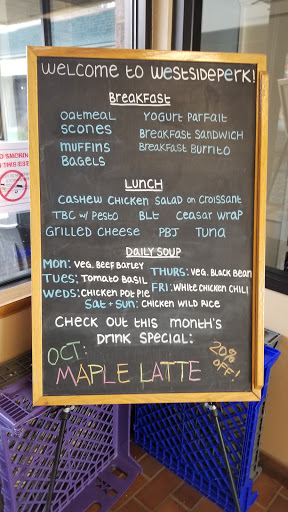 WELCOME TO WESTSIDEPERK!
BREAKFAST
OATMEAL YOGURT PARFAIT
SCONES BREAKFAST SANDWICH
MUFFINS BREAKFAST BURRITO
BAGELS
LUNCH
CASHEW CHICKEN SALAD ON CROISSANT
TBC W/ PESTO BLT CEASAR WRAP
GRILLED CHEESE PBJ TUNA
DAILY SOUP
MON: VEG. BEEF BARLEY
TUES: TOMATO BASIL THURS: VEG. BLACK BEAN
WEDS: CHICKEN POT PIE FRI: WHITE CHICKEN CHILI
SAT + SUN: CHICKEN WILD RICE
CHECK OUT THIS MONTH'S
DRINK SPECIAL:
OCT: 20% OFF!
MAPLE LATTE